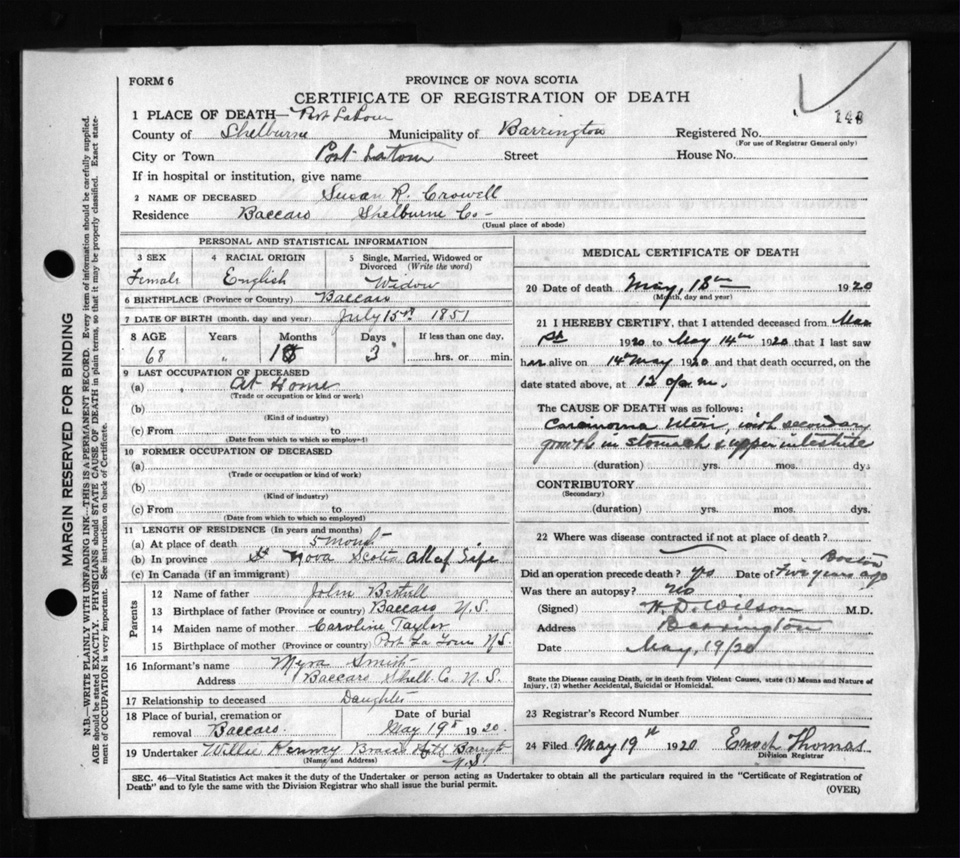 FORM 6
PROVINCE OF NOVA SCOTIA
CERTIFICATE OF REGISTRATION OF DEATH
1 PLACE OF DEATH—Port Latour
County of Shelburne Municipality of Barrington Registered No. 148
(For use of Registrar General only)
City or Town Port Latour Street House No.
If in hospital or institution, give name
2 NAME OF DECEASED Susan R. Crowell
Residence Baccaro Shelburne Co-
(Usual place of abode)
PERSONAL AND STATISTICAL INFORMATION
3 SEX 4 RACIAL ORIGIN 5 Single, Married, Widowed or
Divorced (Write the word)
Female English Widow
6 BIRTHPLACE (Province or Country) Baccaro
7 DATE OF BIRTH (month, day and year) July 15th 1851
8 AGE Years Months Days If less than one day,
68 " 10 3 hrs. or min.
9 LAST OCCUPATION OF DECEASED
(a) At Home
(Trade or occupation or kind or work)
(b)
(Kind of industry)
(c) From to
(Date from which to which so employed)
10 FORMER OCCUPATION OF DECEASED
(a)
(Trade or occupation or kind of work)
(b)
(Kind of industry)
(c) From to
(Date from which to which so employed)
11 LENGTH OF RESIDENCE (In years and months)
(a) At place of death 5 month
(b) In province Nova Scotia All of Life
(c) In Canada (if an immigrant)
Parents
12 Name of father John
13 Birthplace of father (Province or country) Baccaro N.S.
14 Maiden name of mother Caroline Taylor
15 Birthplace of mother (Province or country) Port La Tour N.S.
16 Informant's name Myra Smith
Address Baccaro Shell. Co. N.S.
17 Relationship to deceased Daughter
18 Place of burial, cremation or Date of burial
removal Baccaro. May 19th 1920.
19 Undertaker Willie Kenney Brass Hill Barrgt
(Name and Address) N.S
MEDICAL CERTIFICATE OF DEATH
20 Date of death May, 18th 1920
(Month, day and year)
21 I HEREBY CERTIFY, that I attended deceased from Mar
1st 1920 to May 14th 1920 that I last saw
her alive on 14th May 1920 and that death occurred, on the
date stated above, at 12 o/p.m.
The CAUSE OF DEATH was as follows:
Carcinoma Uteri, with secondary
growth in stomach & upper intestine
(duration) yrs. mos. dys
CONTRIBUTORY
(Secondary)
(duration) yrs. mos. dys.
22 Where was disease contracted if not at place of death?
Boston
Did an operation precede death? Yes Date of Five years ago
Was there an autopsy? No
(Signed) H. D. Wilson M.D.
Address Barrington
Date May, 19/20
State the Disease causing Death, or in death from Violent Causes, state (1) Means and Nature of
Injury, (2) whether Accidental, Suicidal or Homicidal.
23 Registrar's Record Number
24 Filed May 19th 1920 Enoch Thomas
Division Registrar
SEC. 46—Vital Statistics Act makes it the duty of the Undertaker or person acting as Undertaker to obtain all the particulars required in the "Certificate of Registration of
Death" and to fyle the same with the Division Registrar who shall issue the burial permit.
(OVER)
MARGIN RESERVED FOR BINDING
N.B.—WRITE PLAINLY WITH UNFADING INK—THIS IS A PERMANENT RECORD. Every item of information should be carefully supplied.
AGE should be stated EXACTLY. PHYSICIANS should STATE CAUSE OF DEATH in plain terms, so that it may be properly classified. Exact state-
ment of OCCUPATION is very important. See instructions on back of Certificate.